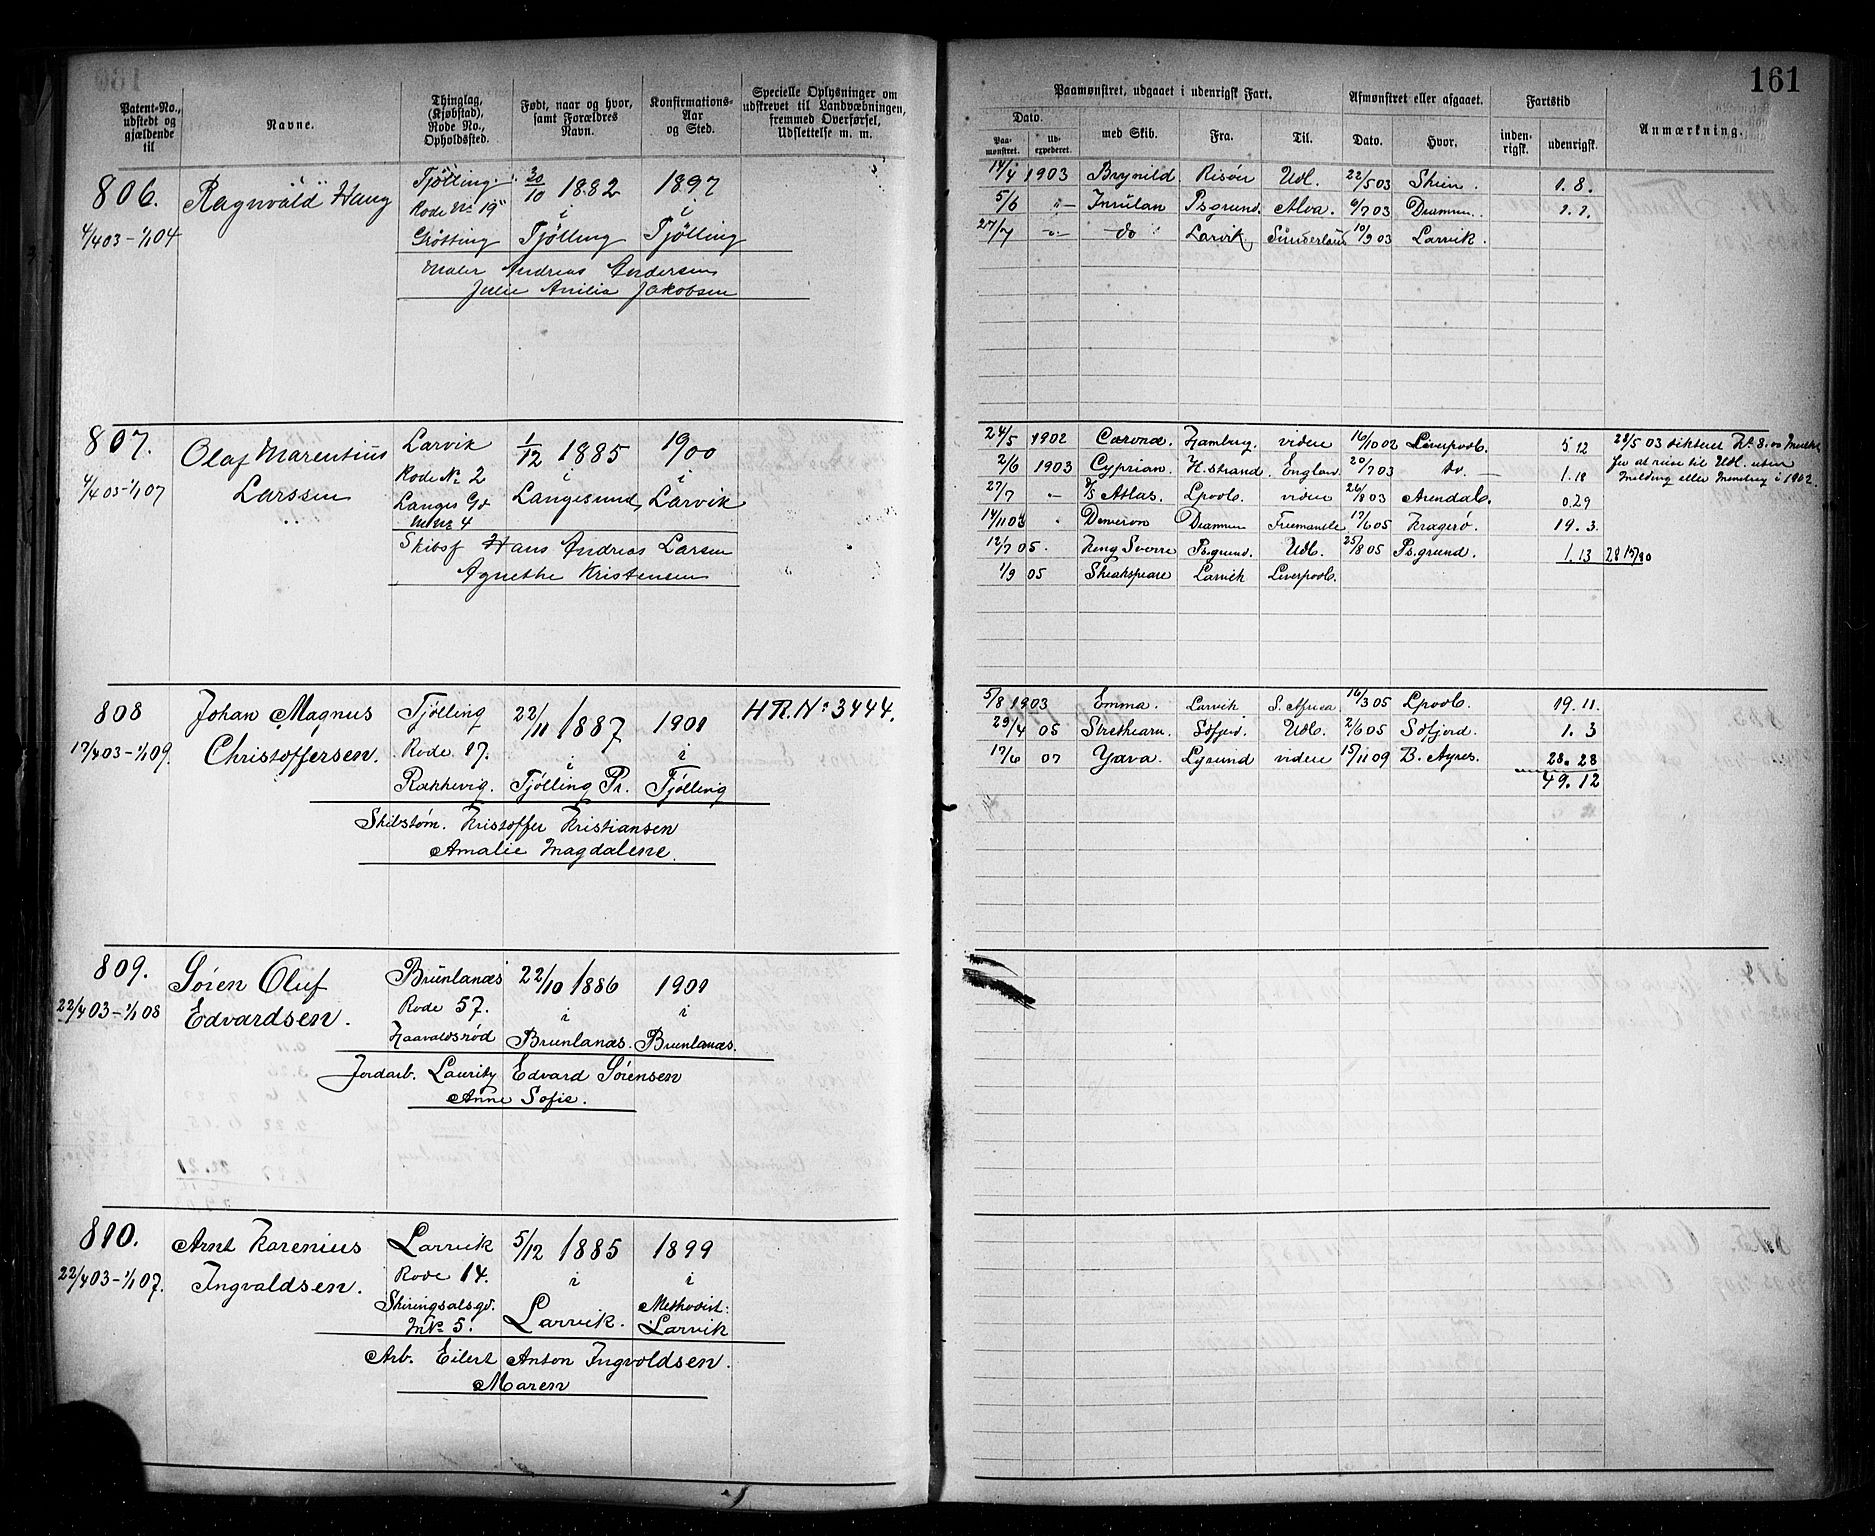 161
Patent-No., udstedt og gjældende til
Navne.
Thinglag, (Kjøbstad), Rode No., Opholdssted.
Født, naar og hvor, samt Forældres Navn.
Konfirmations-Aar og Sted.
Specielle Oplysninger om udskrevet til Landvæbningen, fremmed Overførsel, Udslettelse m. m.
Paamønstret, udgaaet i udenrigsk Fart.
Afmønstret eller afgaaet.
Fartstid
Anmærkning.
Dato.
Paa-mønstret.
Ud-expederet.
med Skib.
Fra.
Til.
Dato.
Hvor.
inden-rigsk.
udenrigsk.
806. Ragnvald Haug Tjølling. 20/10 1882 1897
Rode No 19 i i
4/4 03 - 1/1 04 Grøtting Tjølling Tjølling
Maler Andreas Andersen
Julie Amilia Jakobsen
14/4 1903 Brynild. Risör Udl. 22/5 03 Skien. 1. 8.
5/6 " - Insulan Psgrund. Alva. 6/7 03 Drammen. 1. 1.
27/7 - " - do Larvik Sunderland 10/9 03 Larvik.
807. Olaf Marentius Larvik 1/12 1885 1900
Larssen Rode No 2 i i
4/4 03 - 1/1 07 Langes Gd Langesund Larvik
M No 4
Skibsf Hans Andreas Larsen
Agnethe Kristensen
24/5 1902 Hamburg. videre 16/10 02 Liverpool. 5. 12 28/5 03
2/6 1903 Cyprian. H.strand. England. 20/7 03 do. - 1. 18 for at reise til Udl. uten
27/7 - D/S Atlas. Lpool. videre 26/8 03 Arendal. 0.29 Melding eller Mønstrg i 1902.
14/11 03 Drammen Freemantle 17/6 05 Kragerø. 19. 3.
12/7 05. Kong Sverre Psgrund. Udl. 25/8 05 Psgrund. 1. 13 28 15/30
1/9 05 Sheakspeare Larvik Liverpool.
808 Johan Magnus Tjølling 22/11 1887 1901 HR. No 3444.
17/4 03 - 1/1 09. Christoffersen. Rode 17. i i
Rækkevig. Tjølling Pr. Tjølling
Skibstøm. Kristoffer Kristiansen
Amalie Magdalene.
5/8 1903 Emma. Larvik S. Africa 16/3 05 Lpool. 19. 11.
29/4 05 Strathearn. Udl. 2/6 05 Sofjord. 1. 3
17/6 07 Yava. Lysund videre 15/11 09 B. Ayres. 28. 28
49. 12
809. Sören Oluf Brunlanæs 22/10 1886 1901
22/4 03 - 1/1 08 Edvardsen. Rode 57. i i
Haavaldsrød Brunlanæs. Brunlanæs.
Jordarb. Lauritz Edvard Sörensen
Anne Sofie.
810. Arnt Karenius Larvik 5/12 1885 1899
22/4 03 - 1/1 07. Ingvaldsen. Rode 14. i i
Skiringsalsgd. Methodist.
M No 5. Larvik. Larvik
Arb. Eilert Anton Ingvoldsen.
Maren